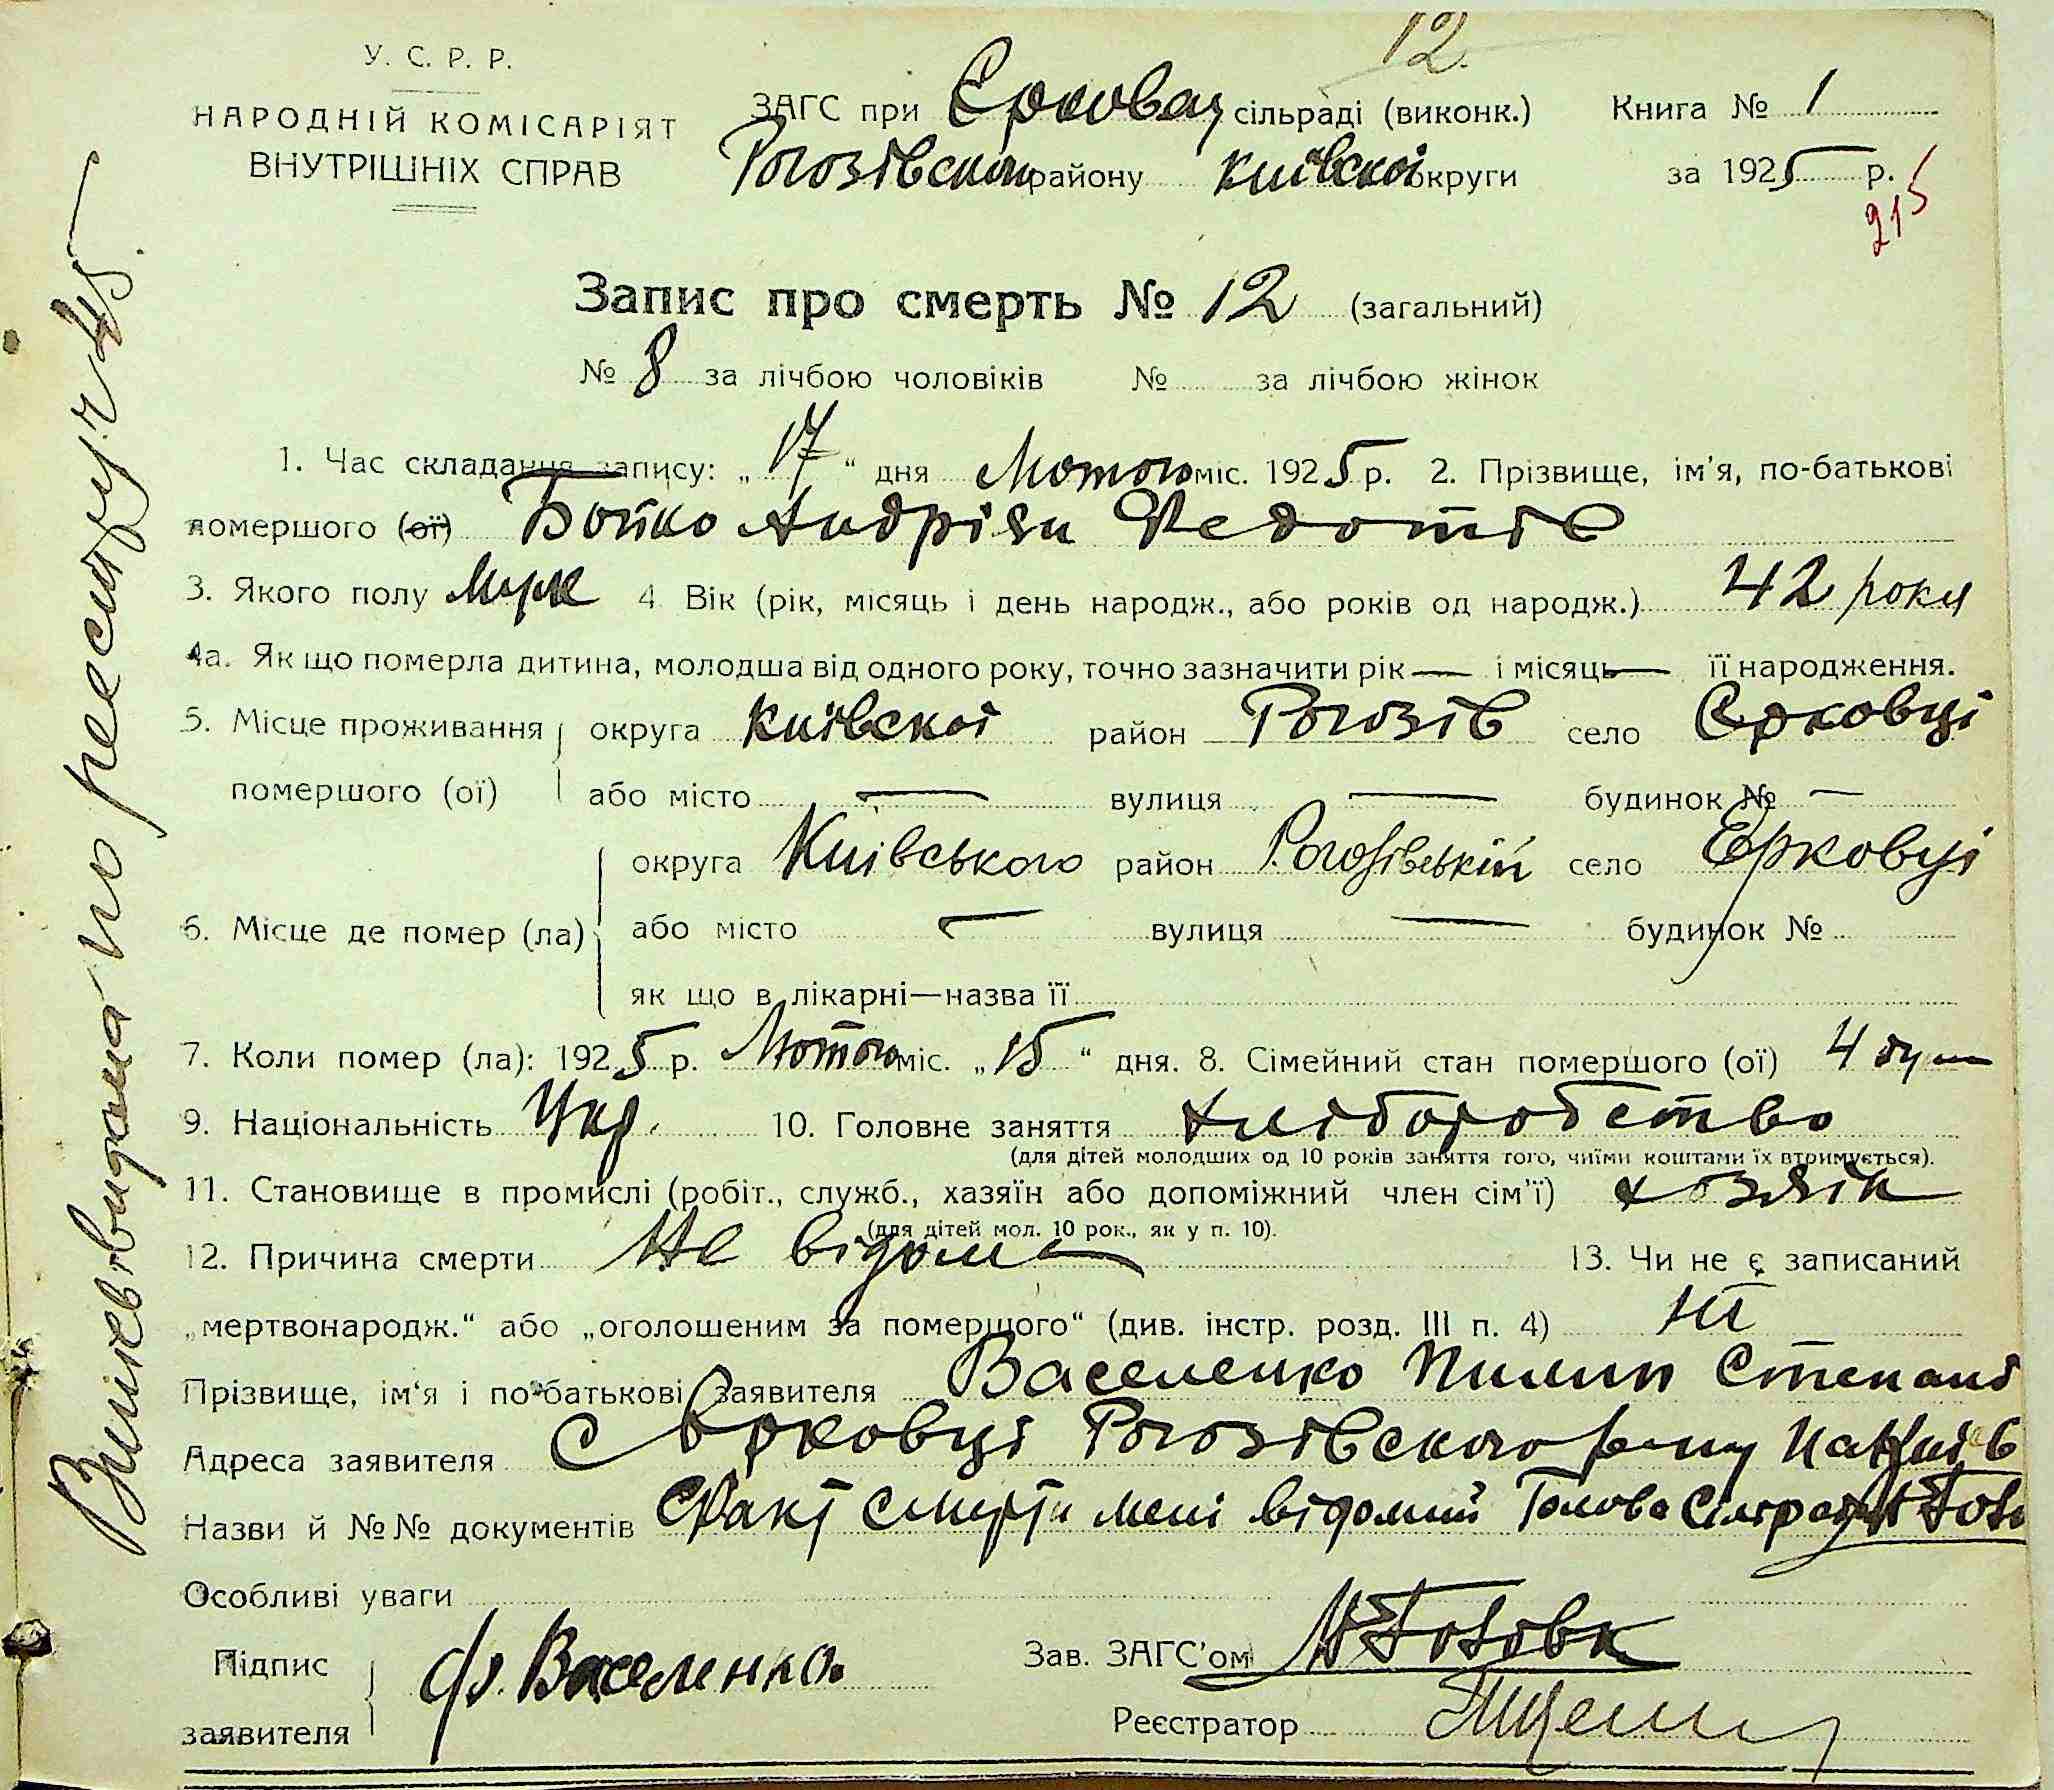 12.
У. С. Р. Р.
НАРОДНІЙ КОМІСАРІЯТ
ВНУТРІШНІХ СПРАВ
ЗАГС при Єрковец сільраді (виконк.) Книга № 1
Рогозівском району київскоі округи за 1925 р.
215
Запис про смерть № 12 (загальний)
№ 8 за лічбою чоловіків № за лічбою жінок
1. Час складання запису: „17“ дня Лютого міс. 1925 р. 2. Прізвище, ім'я, по-батькові
помершого (ої) Бойко Андріян Федотів
3. Якого полу Муж 4 Вік (рік, місяць і день народж., або років од народж.) 42 роки
4а. Як що померла дитина, молодша від одного року, точно зазначити рік — і місяць — її народження.
5. Місце проживання округа київскоі район Рогозів село Єрковці
помершого (ої) або місто — вулиця — будинок № —
округа Київського район Рогозівській село Єрковці
6. Місце де помер (ла) або місто — вулиця — будинок №
як що в лікарні—назва її
7. Коли помер (ла): 1925 р. Лютого міс. „15“ дня. 8. Сімейний стан помершого (ої) 4 душ
9. Національність Укр. 10. Головне заняття хліборобство
(для дітей молодших од 10 років заняття того, чиїми коштами їх втримується).
11. Становище в промислі (робіт., служб., хазяїн або допоміжний член сім'ї) хозяін
(для дітей мол. 10 рок., як у п. 10).
12. Причина смерти Не відома 13. Чи не є записаний
„мертвонародж.“ або „оголошеним за помершого“ (див. інстр. розд. III п. 4) ні
Прізвище, ім'я і по-батькові заявителя Васеленко Пилип Степані
Адреса заявителя с Єрковці Рогозівского
Назви й №№ документів Факт смерти мені відомий Голова Сілради
Особливі уваги
Підпис
заявителя
Васеленко
Зав. ЗАГС'ом
Реєстратор